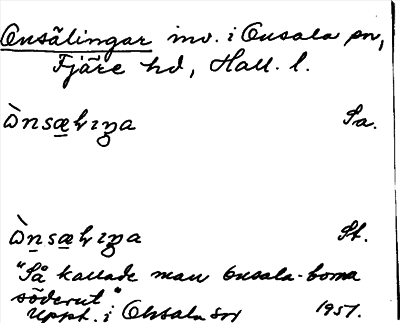 Onsälingar inv. i Onsala sn,
Fjäre hd, Hall. l.
ònsæḷıŋa Sa.
ònsæḷıŋa St.
"Så kallade man Onsala-borna
söderut"
Uppt. i Onsala sn 1951.